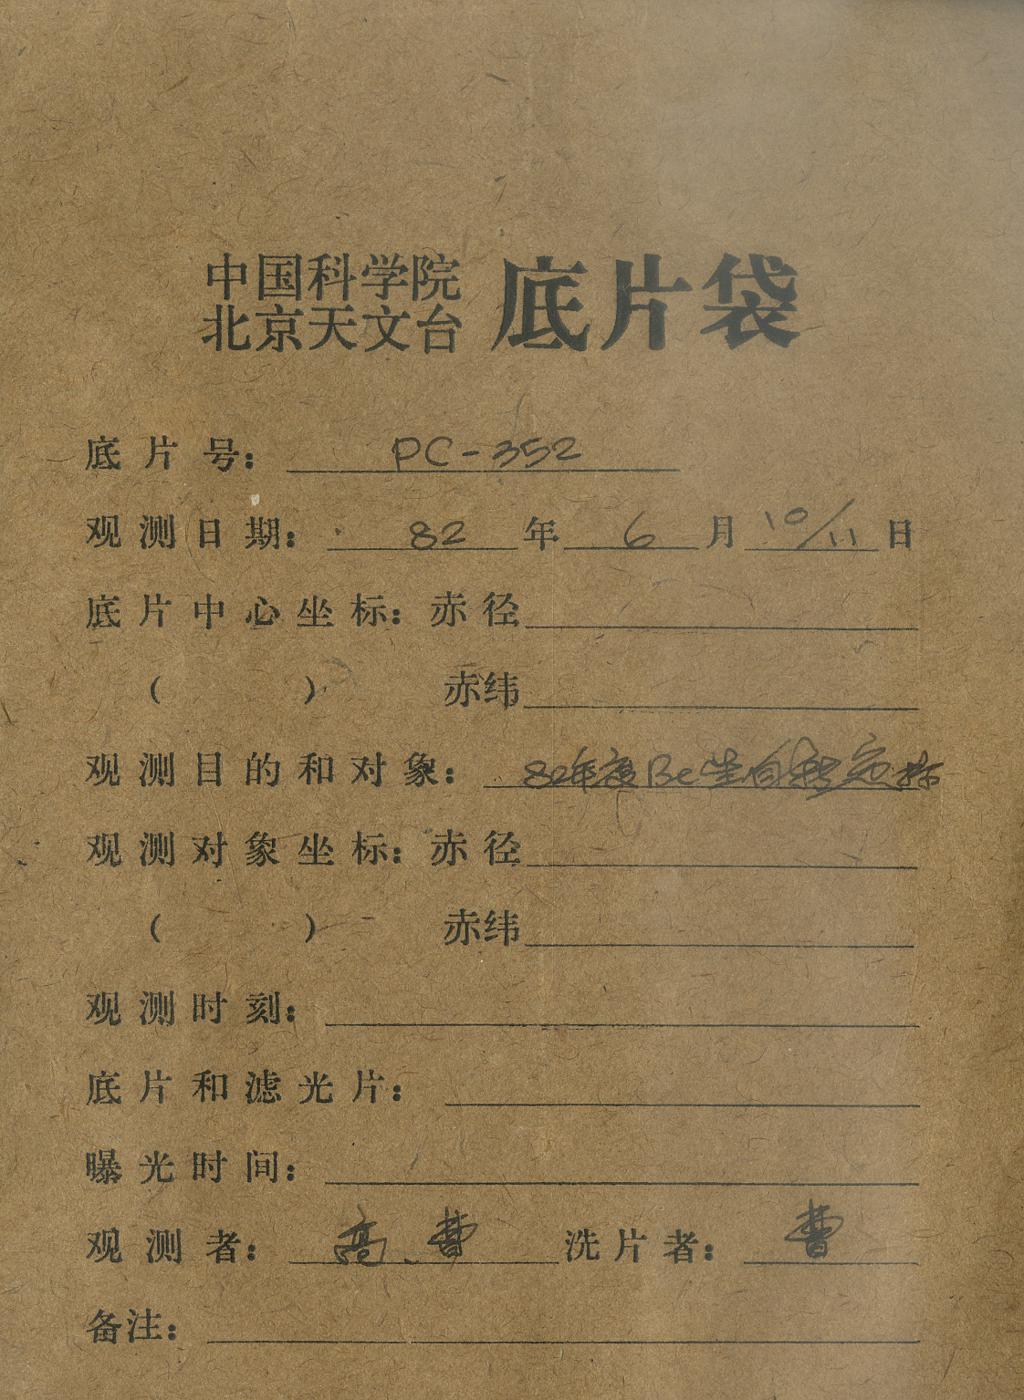 中国科学院
北京天文台 底片袋
底片号: PC-352
观测日期: 82年6月10/11日
底片中心坐标: 赤径
( ) 赤纬
观测目的和对象: 82年度Be星自转定标
观测对象坐标: 赤径
( ) 赤纬
观测时刻:
底片和滤光片:
曝光时间:
观测者: 高、曹 洗片者: 曹
备注: